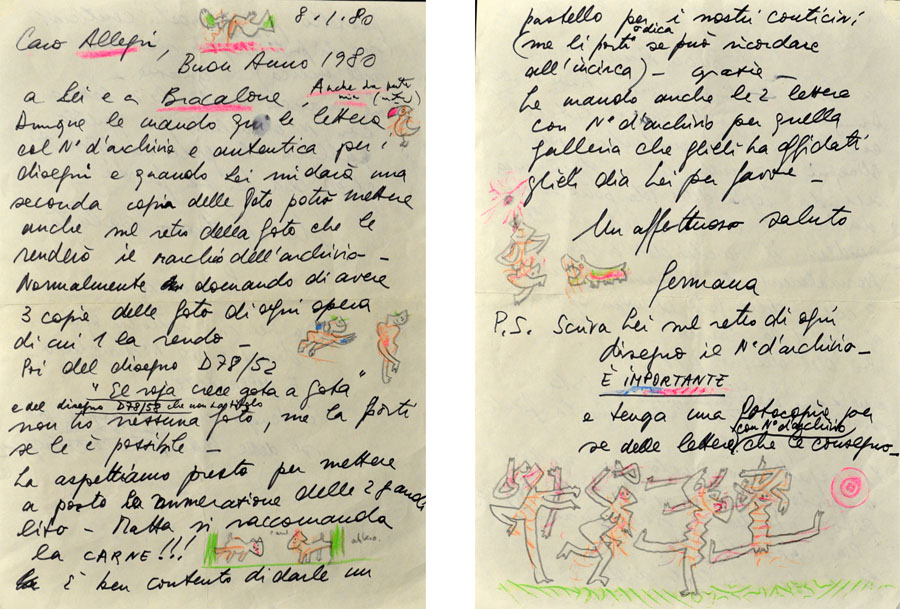 8.1.80
Caro Allegri,
Buon Anno 1980
a Lei e a Bracalone, Anche da parte
mia
Dunque le mando qui le lettere
col N° d'archivio e autentica per i
disegni e quando Lei mi darà una
seconda copia delle foto potrò mettere
anche sul retro della foto che le
renderò il marchio dell'archivio –
Normalmente domando di avere
3 copie delle foto di ogni opera
di cui 1 la rendo –
Poi del disegno D78/52
"El roja crece gota a gota"
e del disegno D78/58 che non ha titolo
non ho nessuna foto, me la porti
se le è possibile –
La aspettiamo presto per mettere
a posto la numerazione delle 2 grandi
lito – Matta si raccomanda
la CARNE!!!
è ben contento di darle un
pastello per i nostri conticini
odica
(me li porti se può ricordare
all'incirca) – grazie –
Le mando anche le 2 lettere
con N° d'archivio per quella
galleria che glieli ha affidati
glieli dia Lei per favore –
Un affettuoso saluto
Germana
P.S. Scriva Lei sul retro di ogni
disegno il N° d'archivio –
È IMPORTANTE
e tenga una fotocopia per
con N° d'archivio
se delle lettere che le consegno –